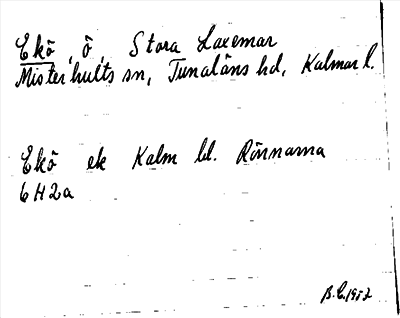 Ekö, ö, Stora Laxemar
Misterhults sn, Tunaläns hd, Kalmar l.
Ekö ek Kalm bl. Rönnarna
6 H 2 a
B.E. 1952